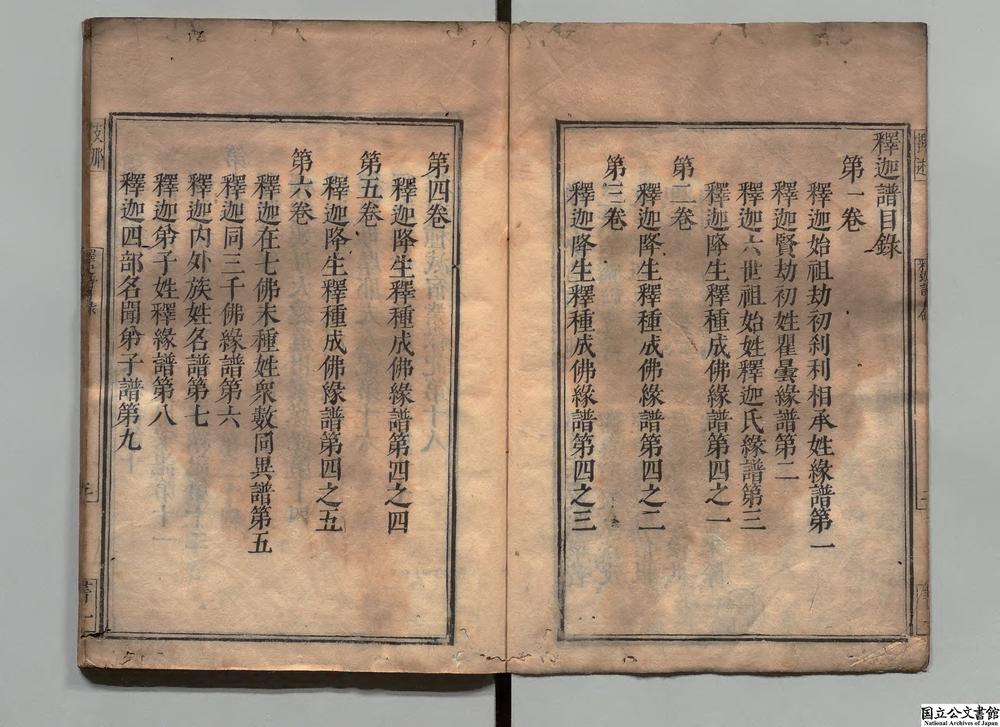 釋迦譜目錄
第一卷
釋迦始祖劫初刹利相承姓緣譜第一
釋迦賢劫初姓瞿曇緣譜第二
釋迦六世祖始姓釋迦氏緣譜第三
釋迦降生釋種成佛緣譜第四之一
第二卷
釋迦降生釋種成佛緣譜第四之二
第三卷
釋迦降生釋種成佛緣譜第四之三
第四卷
釋迦降生釋種成佛緣譜第四之四
第五卷
釋迦降生釋種成佛緣譜第四之五
第六卷
釋迦在七佛末種姓衆數同異譜第五
釋迦同三千佛緣譜第六
釋迦内外族姓名譜第七
釋迦弟子姓釋緣譜第八
釋迦四部名聞弟子譜第九
支那
国立公文書館
National Archives of Japan